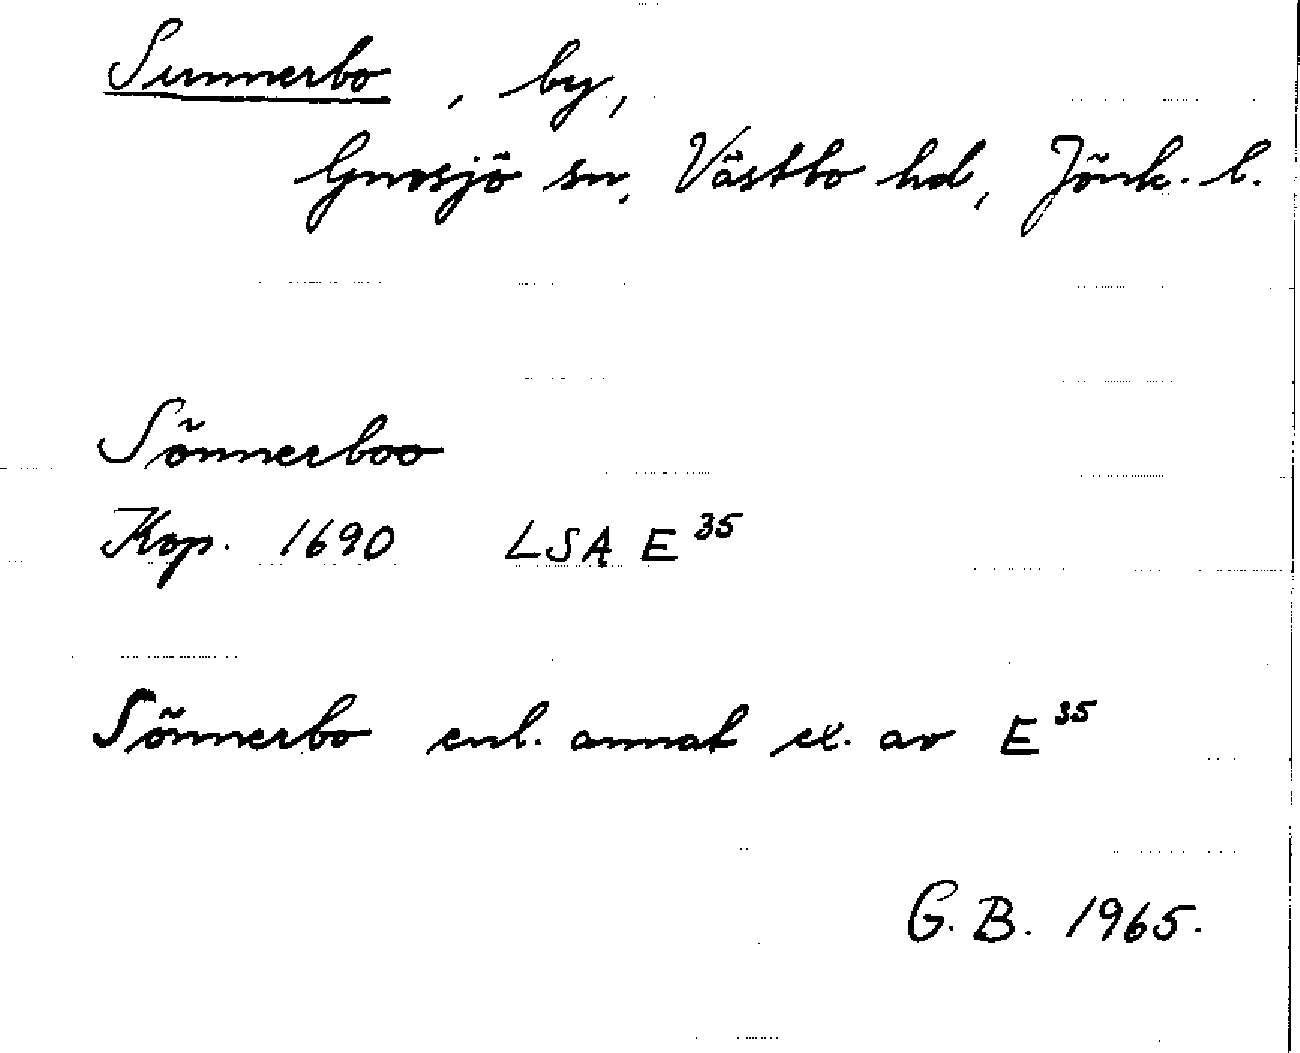 Sunnerbo, by,
Gnosjö sn, Västbo hd, Jönk. l.
Sönnerboo
Kop. 1690 LSA E 35
Sönnerbo enl. annat ex. av E 35
G. B. 1965.